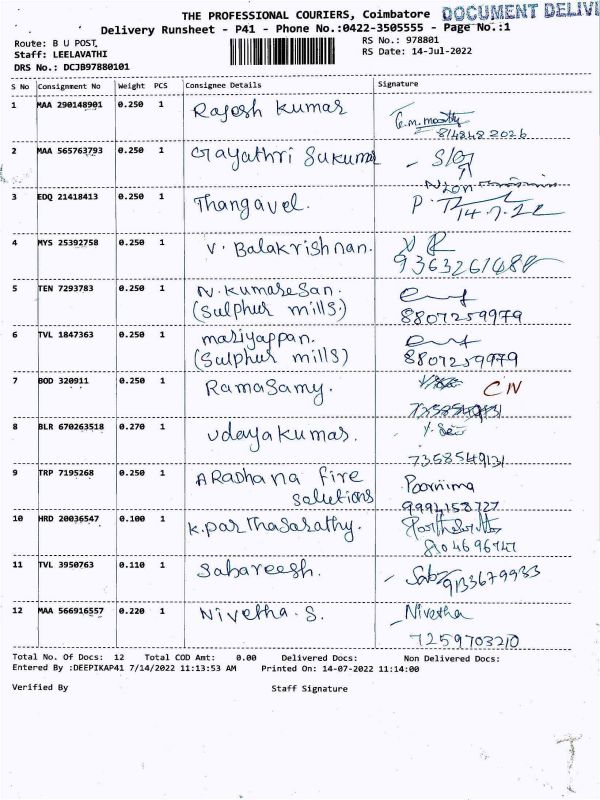 THE PROFESSIONAL COURIERS, Coimbatore DOCUMENT DELIV
Delivery Runsheet - P41 - Phone No.:0422-3505555 - Page No.:1
Route: B U POST, RS No.: 978801
Staff: LEELAVATHI RS Date: 14-Jul-2022
DRS No.: DCJB97880101
S No Consignment No Weight PCS Consignee Details Signature
1 MAA 290148901 0.250 1 Rajesh Kumar
2 MAA 565763793 0.250 1 Gayathri Sukumar S/O
3 EDQ 21418413 0.250 1 Thangavel. P. 14.7.22
4 MYS 25392758 0.250 1 V. Balakrishnan.
5 TEN 7293783 0.250 1 N. Kumaresan.
(Sulphur mills.) 8807259979
6 TVL 1847363 0.250 1 mariyappan.
(Sulphur mills) 8807259979
7 BOD 320911 0.250 1 Ramasamy. CN
8 BLR 670263518 0.270 1 Udayakumar.
7358549131
9 TRP 7195268 0.250 1 ARadhana fire Poornima
solutions 9994158727
10 HRD 20036547 0.100 1 K. parthasarathy.
11 TVL 3950763 0.110 1 Sabareesh. 9133679933
12 MAA 566916557 0.220 1 Nivetha. S. Nivetha
7259703210
Total No. Of Docs: 12 Total COD Amt: 0.00 Delivered Docs: Non Delivered Docs:
Entered By :DEEPIKAP41 7/14/2022 11:13:53 AM Printed On: 14-07-2022 11:14:00
Verified By Staff Signature